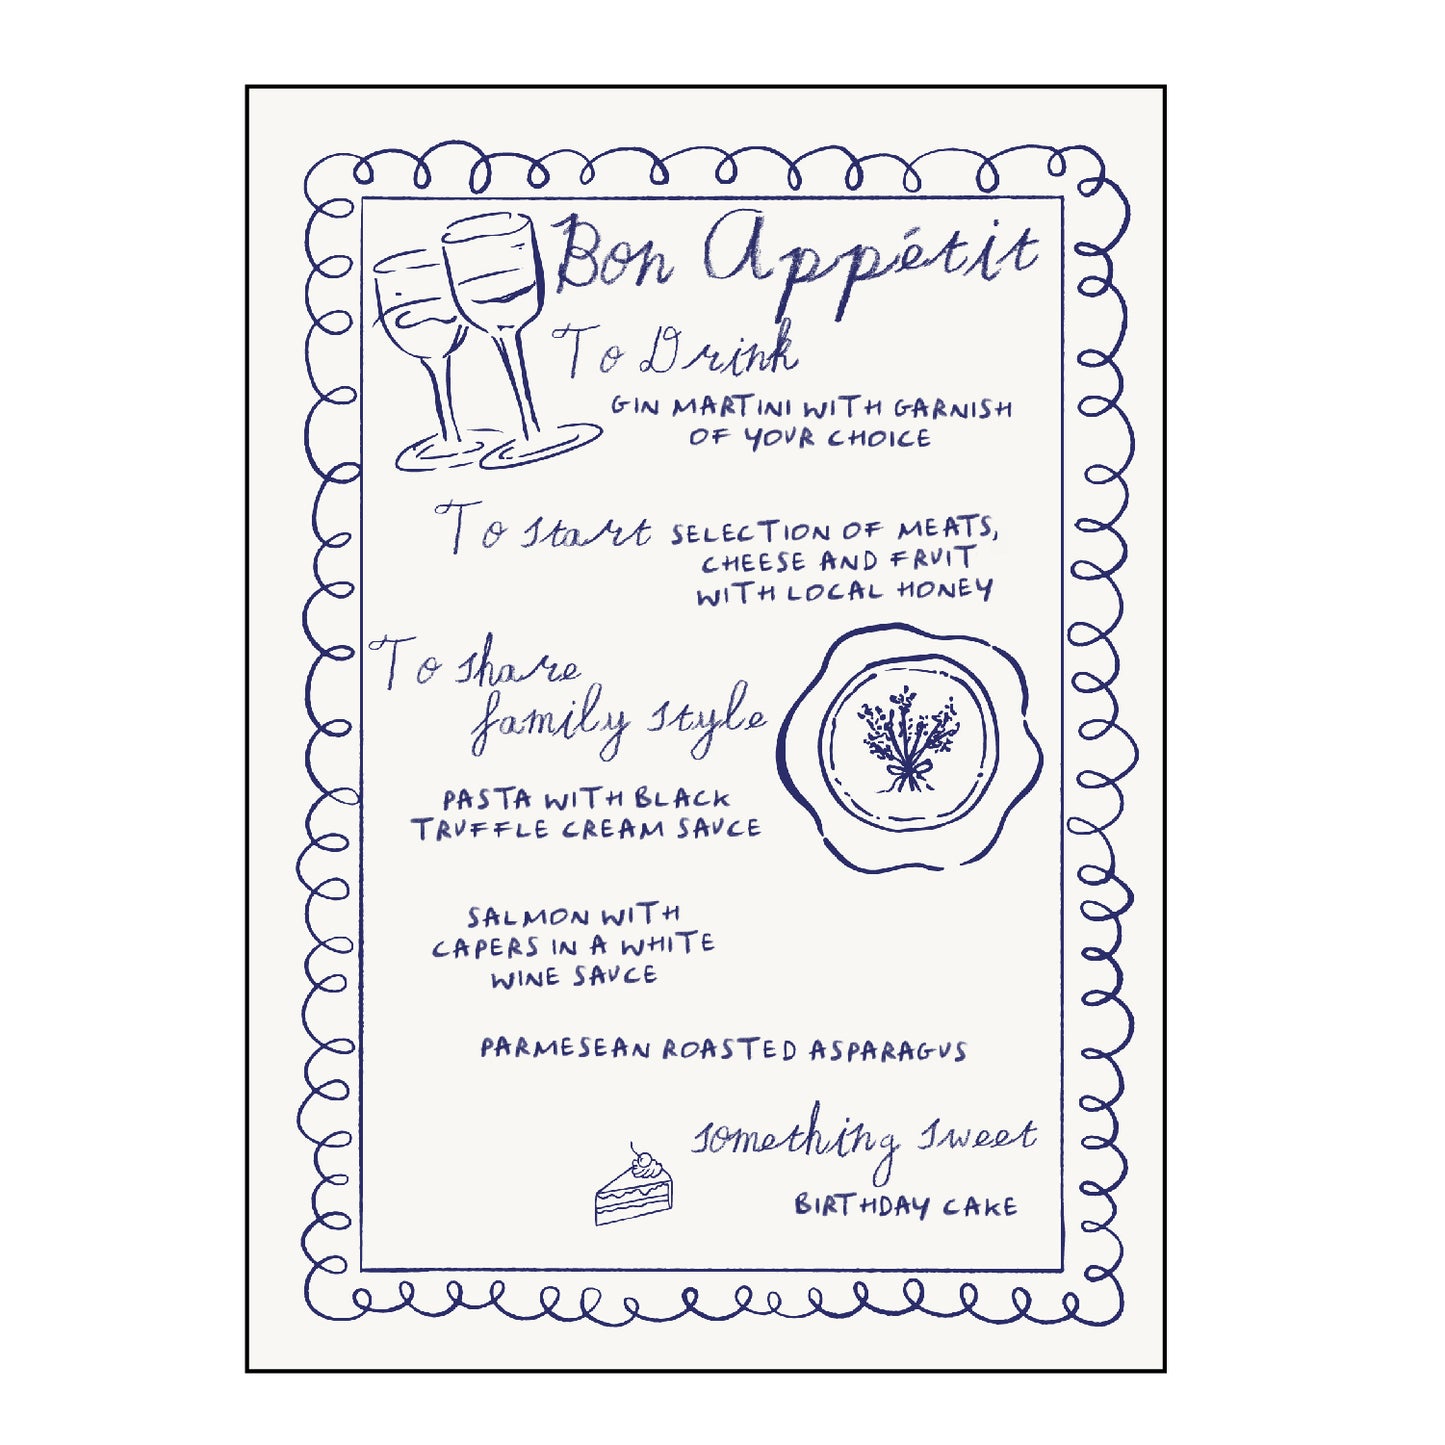 Bon Appétit
To Drink
GIN MARTINI WITH GARNISH
OF YOUR CHOICE
To start
SELECTION OF MEATS,
CHEESE AND FRUIT
WITH LOCAL HONEY
To share
family style
PASTA WITH BLACK
TRUFFLE CREAM SAUCE
SALMON WITH
CAPERS IN A WHITE
WINE SAUCE
PARMESEAN ROASTED ASPARAGUS
something sweet
BIRTHDAY CAKE